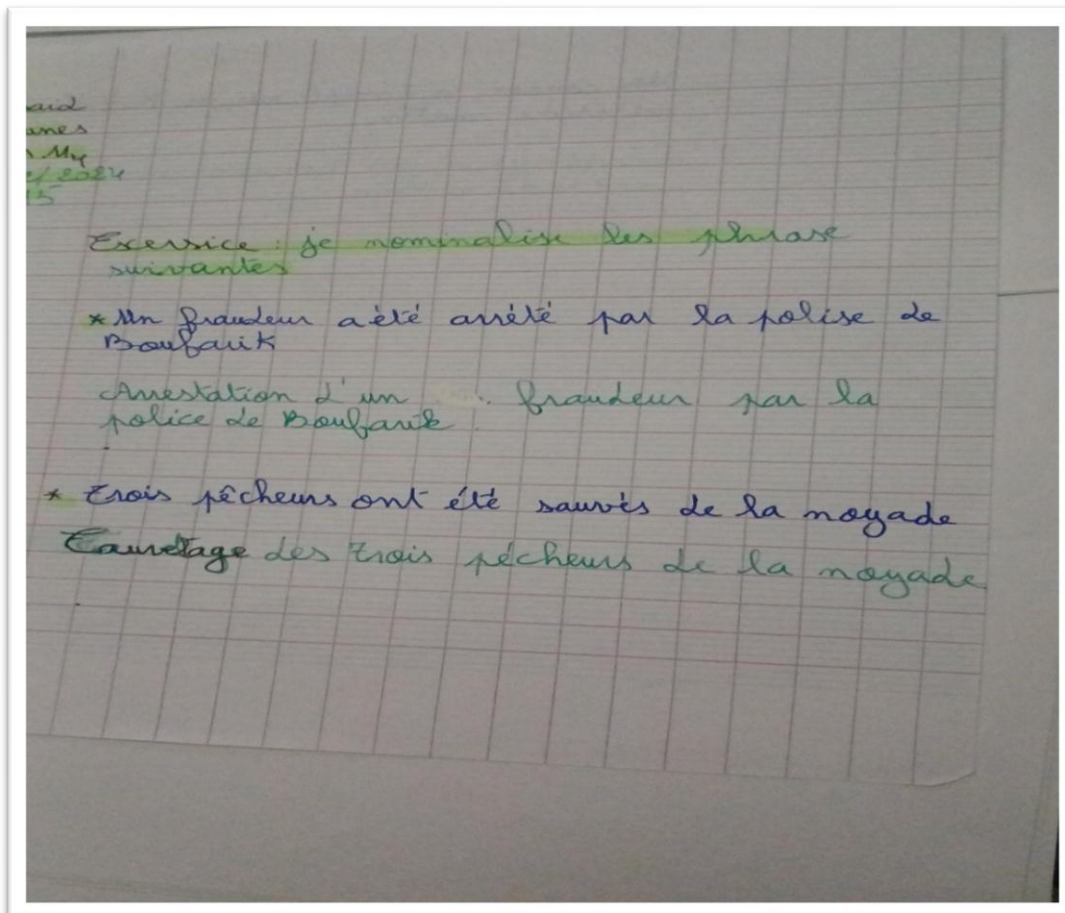 aid
anes
My
/2024
15
Exersice : je nominalise les phrase
suivantes
* Un fraudeur a été arrété par la polise de
Boufarik
Arrestation d'un fraudeur par la
police de Boufarik.
* trois pêcheurs ont été sauvés de la noyade
Sauvetage des trois pécheurs de la noyade